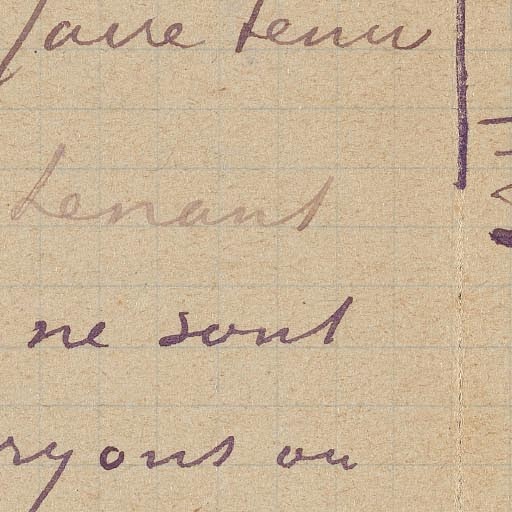 faire tenir
tenant
ne sont
ryons ou